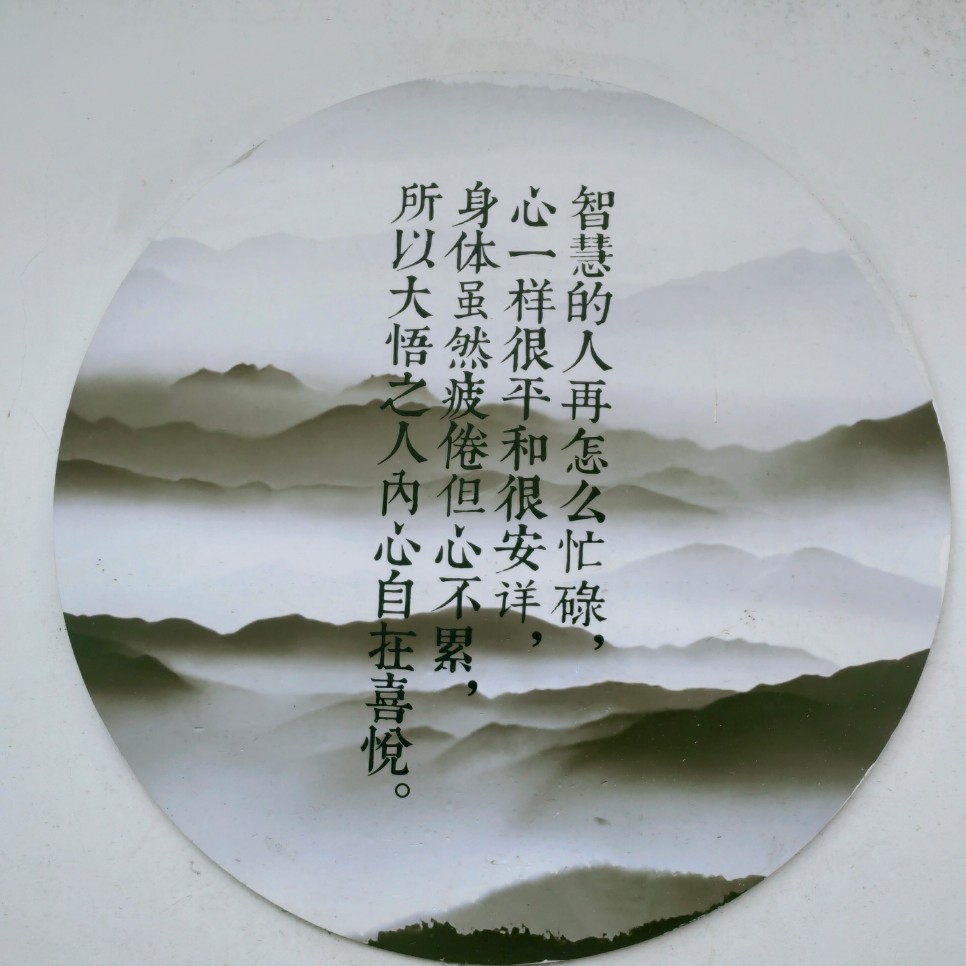 智慧的人再怎么忙碌，
心一样很平和很安详，
身体虽然疲倦但心不累，
所以大悟之人内心自在喜悦。